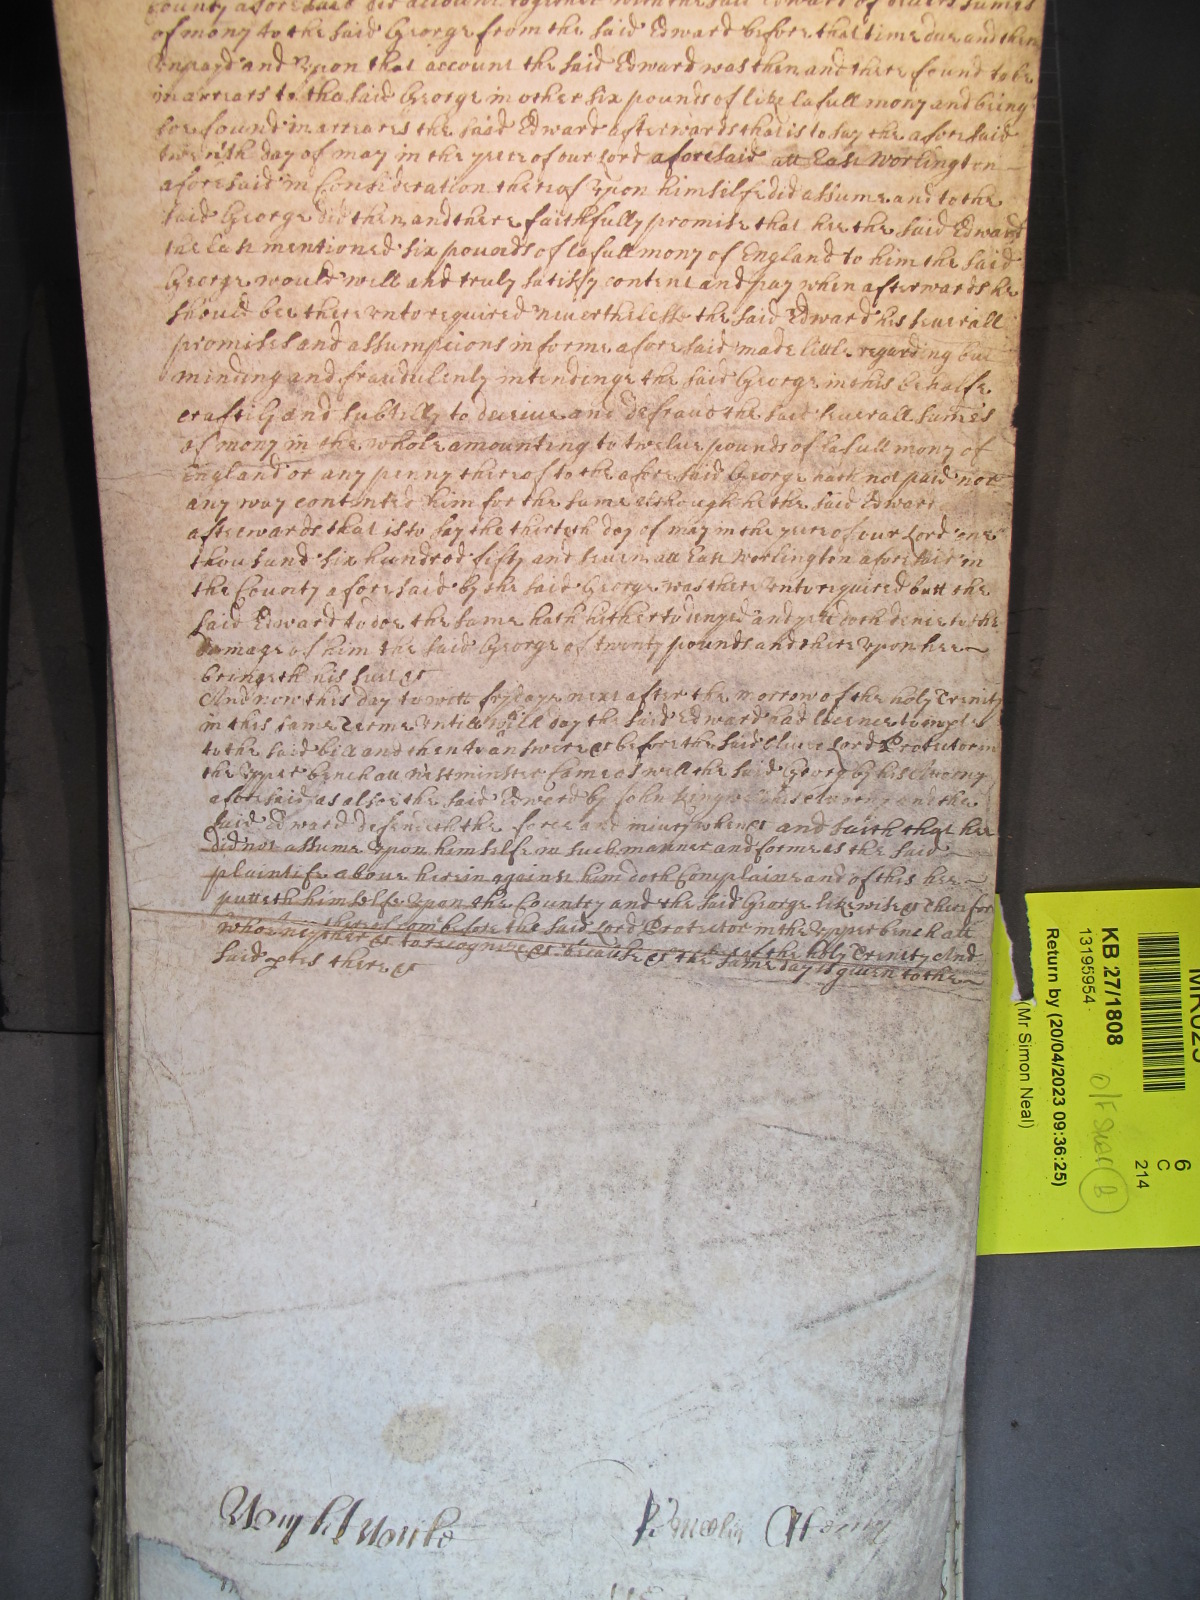 County aforesaid did account together with the said Edward of divers sumes
of mony to the said George from the said Edward before that time due and then
unpayd and upon that account the said Edward was then and there found to be
in arrears to the said George in other six pounds of like lafull mony and being
soe found in arrears the said Edward afterwards that is to say the aforesaid
day of may in the yeere of our Lord aforesaid att East Worlington
aforesaid in Consideration thereof upon himselfe did assume and to the
said George did then and there faithfully promise that hee the said Edward
the last mentioned six pounds of lafull mony of England to him the said
George would well and truly satisfy content and pay when afterwards he
should bee there unto required neverthelesse the said Edward his severall
promises and assumpcions in forme aforesaid made little regarding but
minding and fraudulently intendinge the said George in this behalfe
craftily and subtilly to deceive and defraud the said severall sumes
of mony in the whole amounting to twelve pounds of lafull mony of
England or any penny thereof to the aforesaid George hath not paid nor
any way contented him for the same although he the said Edward
afterwards that is to say the thirteth day of may in the yeere of our Lord one
thousand six hundred fifty and seven att East Worlington aforesaid in
the County aforesaid by the said George was there unto required butt the
said Edward to doe the same hath hitherto denyed and yett doth denie to the
damage of him the said George of twenty pounds and thereupon hee
bringeth his suit &c
And now this day to witt fryday next after the morrow of the holy Trinity
in this same Terme untill will day the said Edward had licence to emple
to the said bill and then to answere &c before the said Oliver Lord Protector in
the upper bench att Westminster Came as well the said George by his Attorny
aforesaid as alsoe the said Edward by John King his attorny and the
said Edward defendeth the force and iniury when &c and saith that hee
did not assume upon himselfe in such manner and forme as the said
plaintife above herein against him doth Complaine and of this hee
putteth himselfe upon the Country and the said George likewise &c therefore
thereof Come before the said Lord Protector in the upper bench att
of the holy Trinity And
who neyther &c to recognize &c because &c the same day is given to the
said ptes there &c
KB 27/1808
13195954
Return by (20/04/2023 09:36:25)
(Mr Simon Neal)
6
C
214